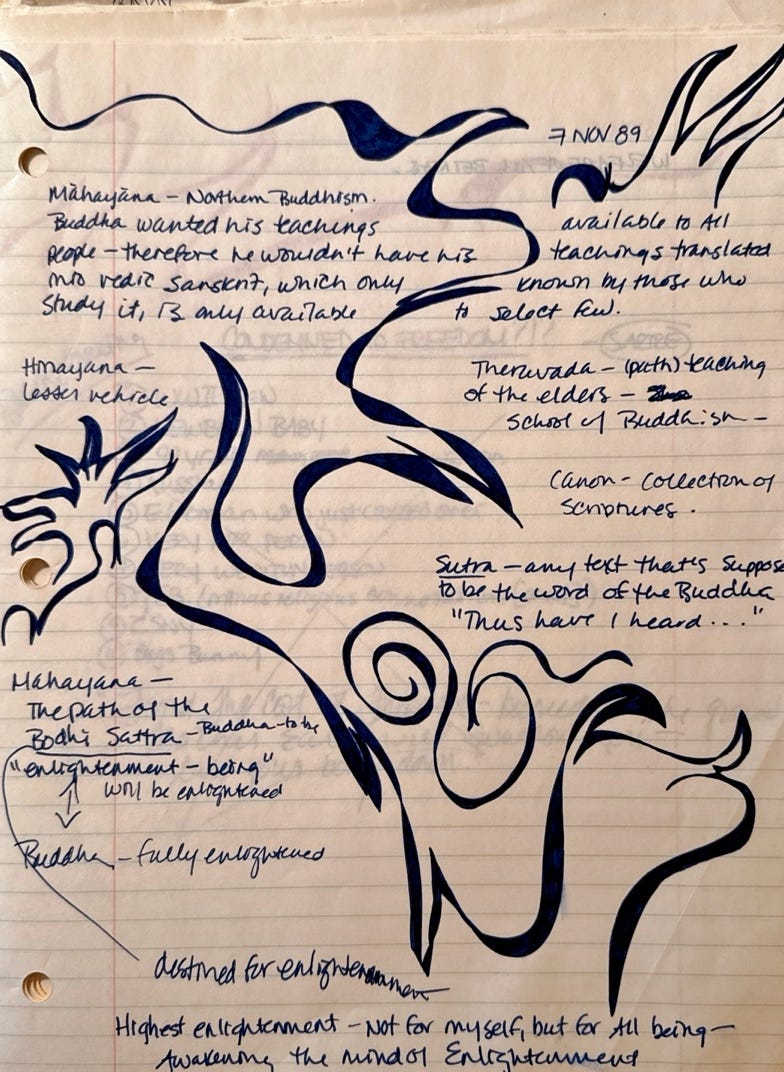 7 NOV 89
Māhayāna – Northern Buddhism.
Buddha wanted his teachings available to All
people – therefore he wouldn't have his teachings translated
into vedic Sanskrit, which only known by those who
study it, is only available to select few.
Hinayana –
lesser vehicle
Theravada – (path) teaching
of the elders –
School of Buddhism –
Canon – Collection of
Scriptures.
Sutra – any text that's suppose
to be the word of the Buddha
"Thus have I heard..."
Mahayana –
The path of the
Bodhi Sattra – Buddha-to-be
"enlightenment – being"
will be enlightened
Buddha – fully enlightened
destined for enlightenment
Highest enlightenment – Not for myself, but for All being –
Awakening the mind of Enlightenment